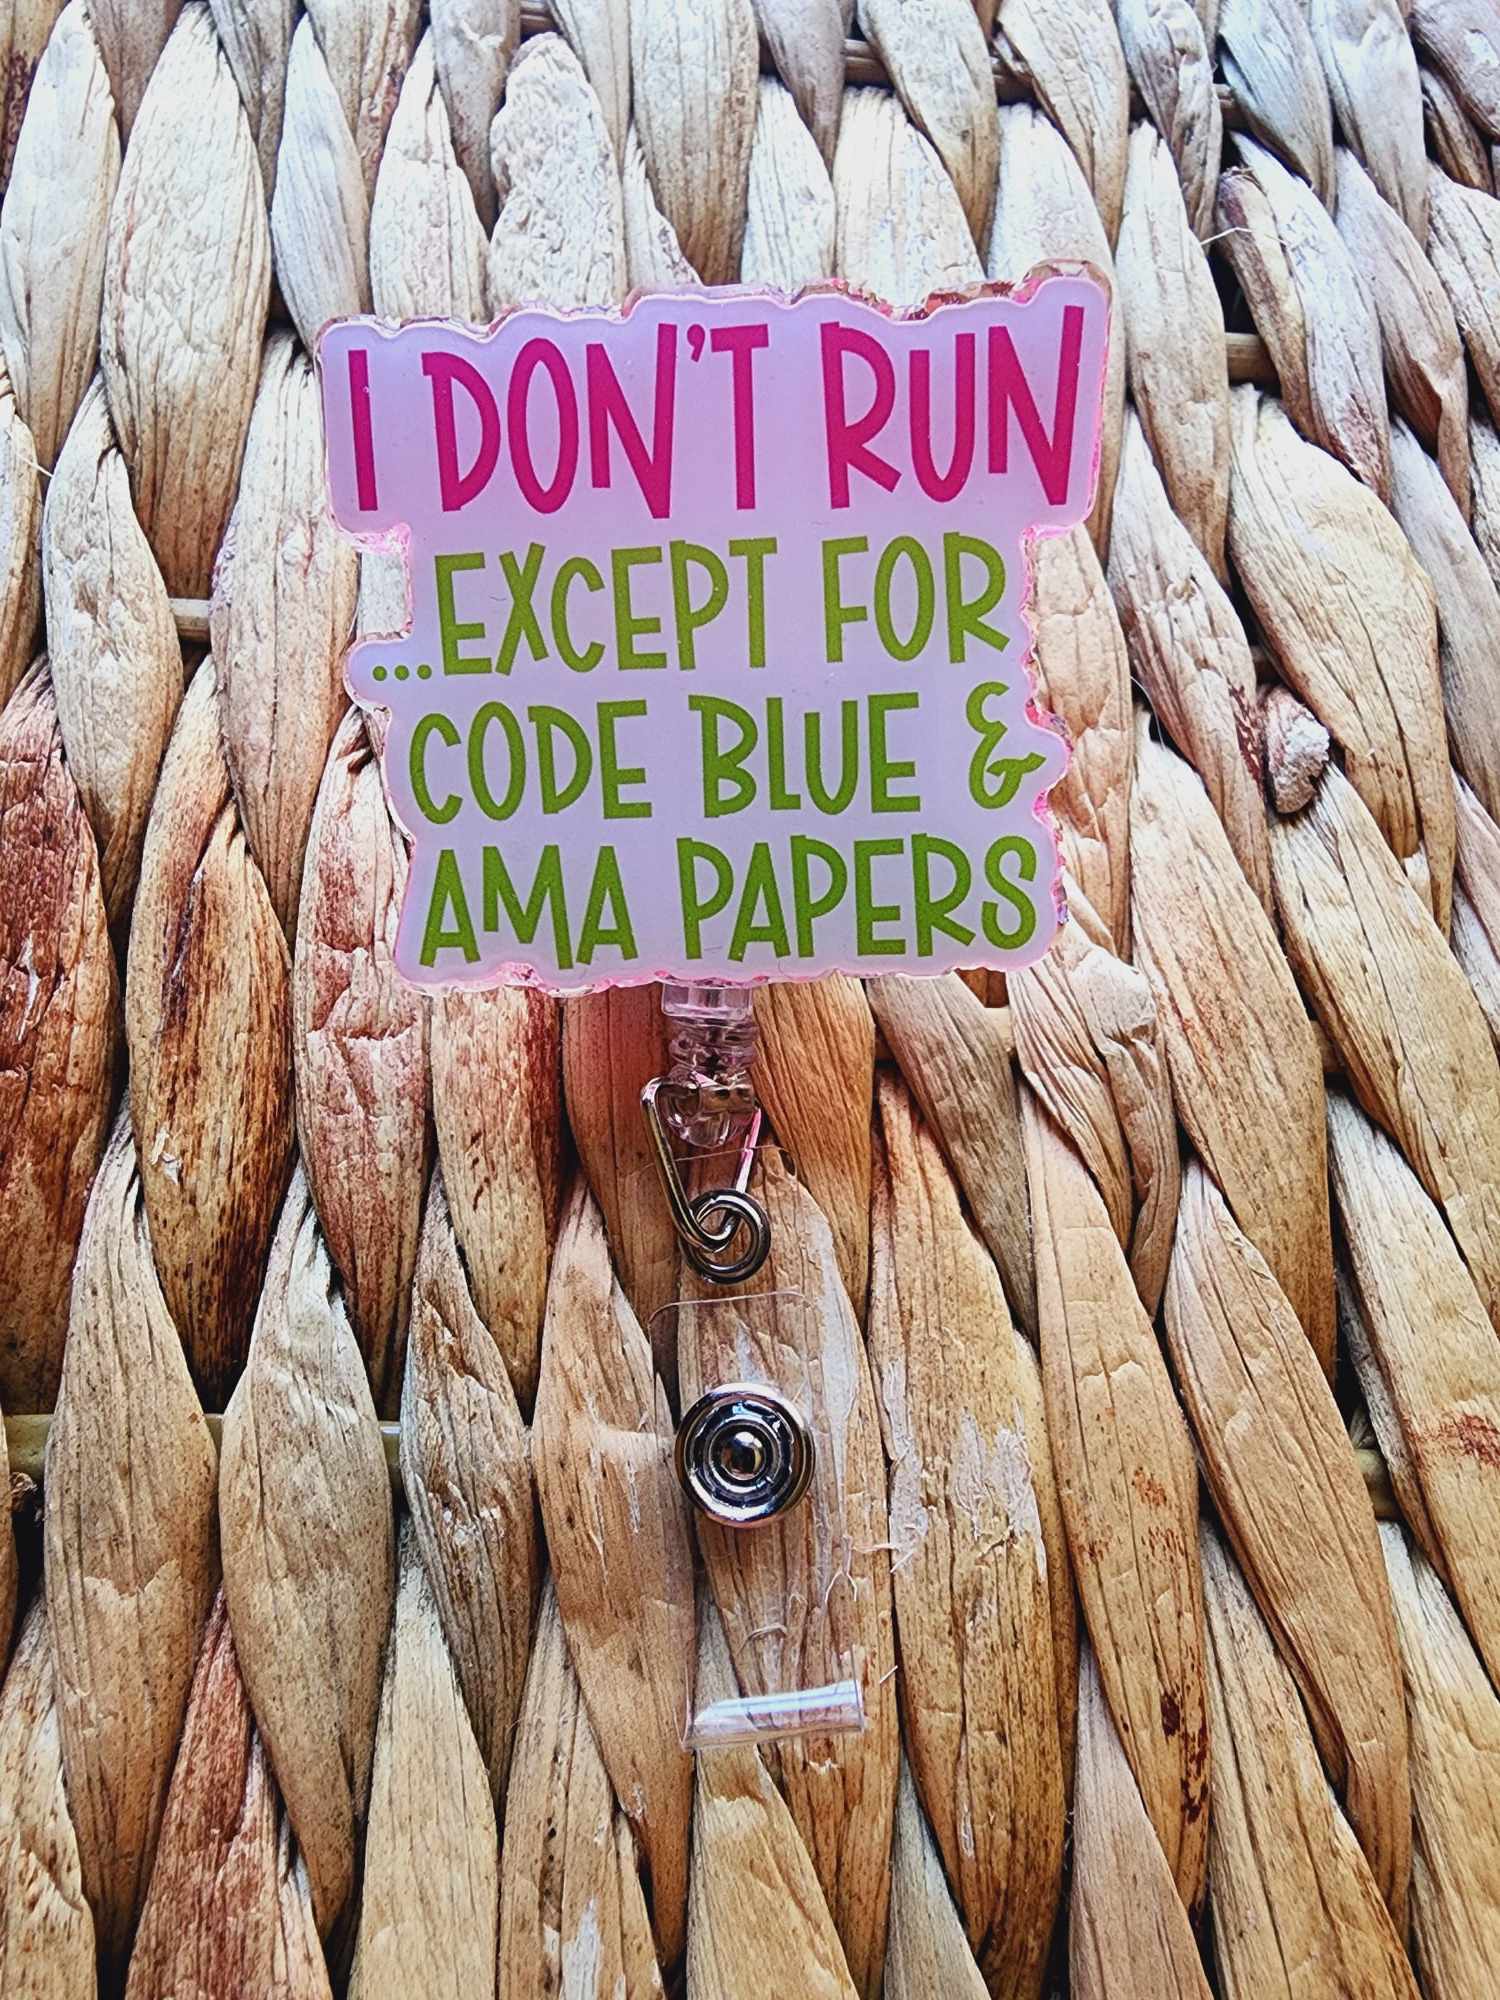 I DON'T RUN
...EXCEPT FOR
CODE BLUE &
AMA PAPERS